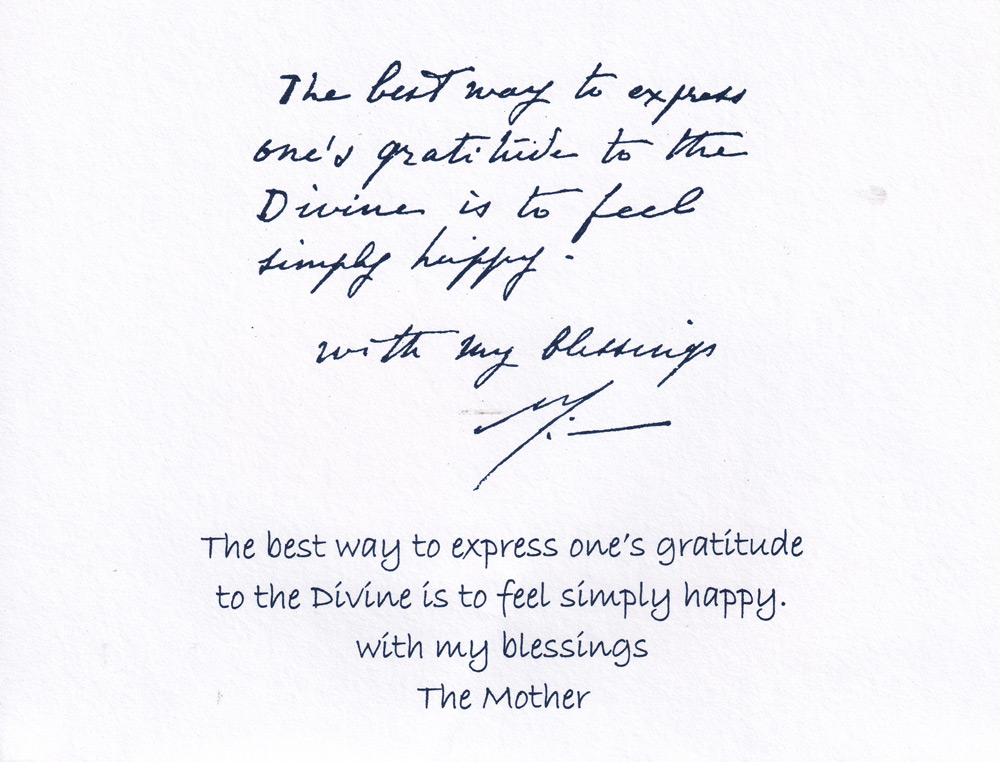 The best way to express
one's gratitude to the
Divine is to feel
simply happy.
with my blessings
The best way to express one's gratitude
to the Divine is to feel simply happy.
with my blessings
The Mother